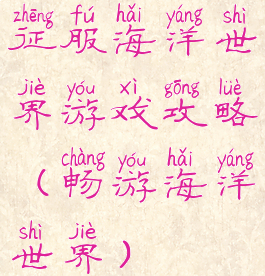 zhēng fú hǎi yáng shì
征服海洋世
jiè yóu xì gōng lüè
界游戏攻略
chàng yóu hǎi yáng
（畅游海洋
shì jiè
世界）